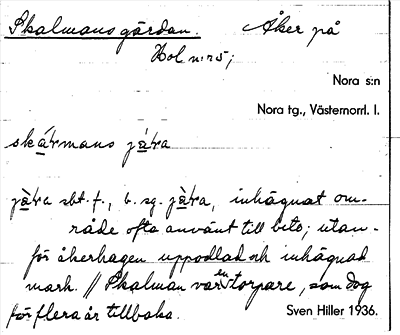 Skalmansgärdan. Åker på
Hol nr 5;
Nora s:n
Nora tg., Västernorrl. l.
skármans jätra
jätra sbt. f., b. sg. jätra, inhägnat om-
råde ofta använt till bete; utan-
för åkerhagen uppodlad och inhägnad
mark. // Skalman var en torpare, som dog
för flera år tillbaka. Sven Hiller 1936.